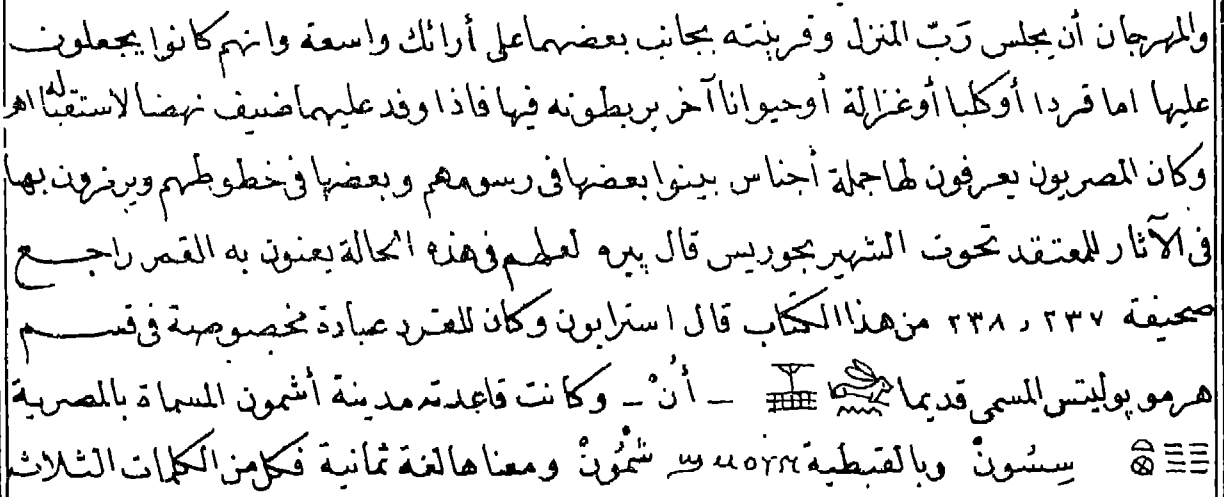 والمهرجان أن يجلس رَبّ المنزل وقرينته بجانب بعضهما على أرائك واسعة وانهم كانوا يجعلون
عليها اما قردا أو كلبا أو غزالة أو حيوانا آخر يربطونه فيها فاذا وفد عليهما ضيف نهضا لاستقباله اه
وكان المصريون يعرفون لها جملة أجناس بينوا بعضها فى رسومهم وبعضها فى خطوطهم ويرمزون بها
فى الآثار للمعتقد تحوت الشهير بجوريس قال بيره لعلهم فى هذه الحالة يعنون به القمر راجع
صحيفة ٢٣٧ و ٢٣٨ من هذا الكتاب قال استرابون وكان للقرد عبادة مخصوصة فى قسم
هرموبوليتس المسمى قديما 𓃹𓈖𓈈 ـ أُنْ ـ وكانت قاعدته مدينة أشمون المسماة بالمصرية
سِسُونْ وبالقبطية ϣⲙⲟⲩⲛ شْمُونْ ومعناها لغة ثمانية فكل من الكلمات الثلاث